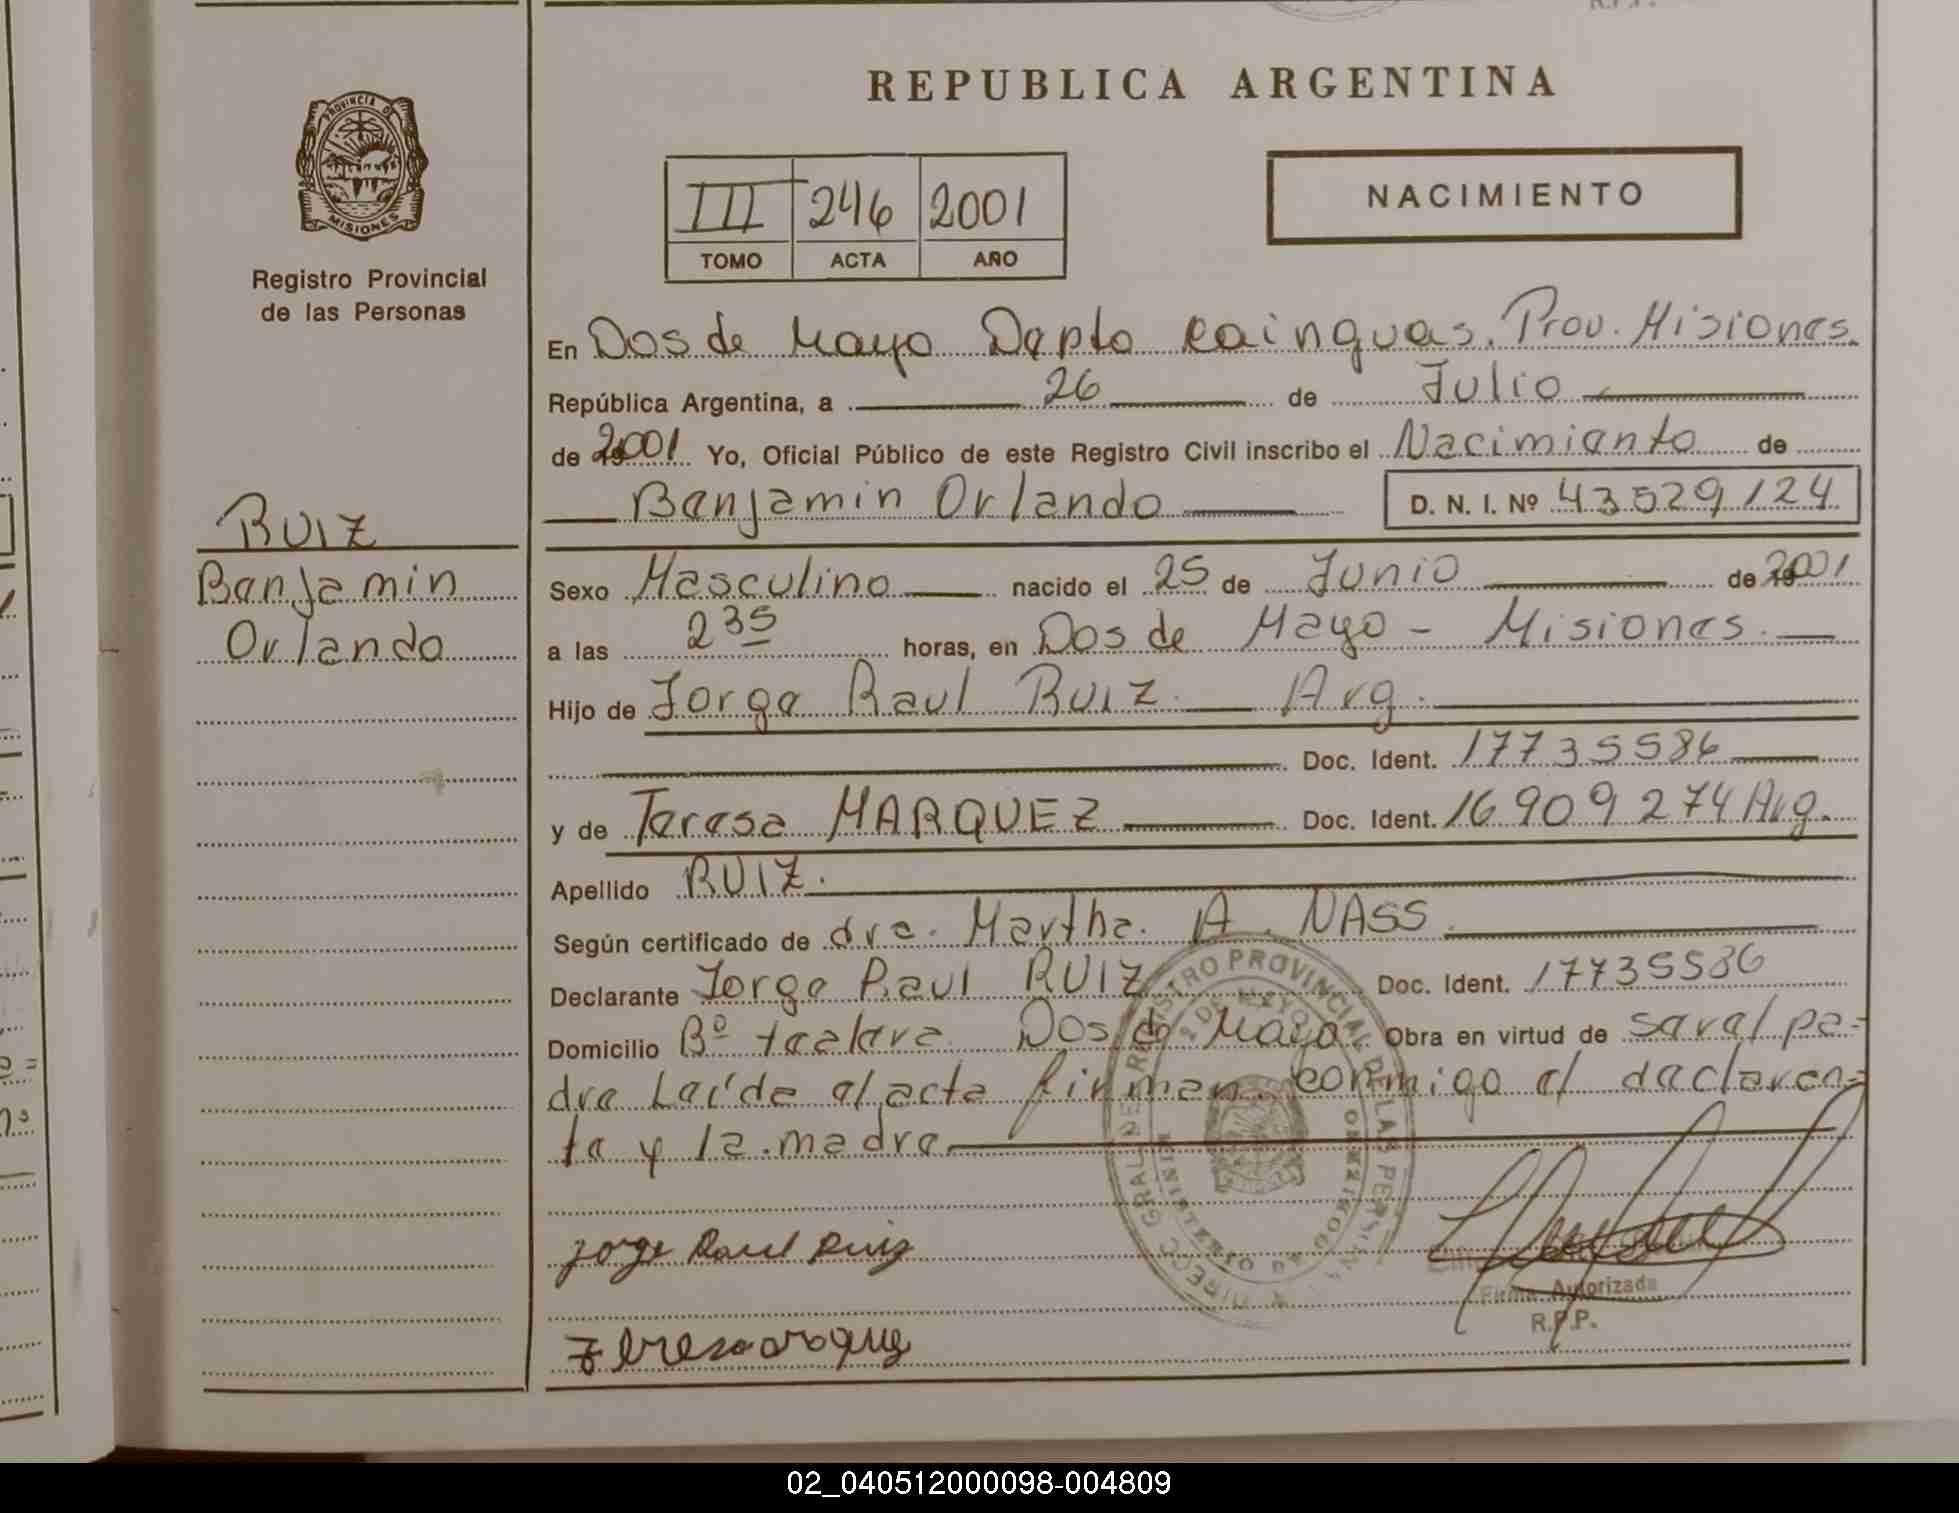 REPUBLICA ARGENTINA
PROVINCIA DE MISIONES
Registro Provincial
de las Personas
III 246 2001
TOMO ACTA AÑO
NACIMIENTO
RUIZ
Benjamin
Orlando
En Dos de Mayo Depto Cainguas. Prov. Misiones.
República Argentina, a 26 de Julio
de 2001 Yo, Oficial Público de este Registro Civil inscribo el Nacimiento de
Benjamin Orlando D. N. I. Nº 43529124
Sexo Masculino nacido el 25 de Junio de 2001
a las 2 35 horas, en Dos de Mayo - Misiones.
Hijo de Jorge Raul RUIZ. Arg.
Doc. Ident. 17735586
y de Teresa MARQUEZ Doc. Ident. 16909274 Arg.
Apellido RUIZ.
Según certificado de dra. Martha. A. NASS
Declarante Jorge Raul RUIZ Doc. Ident. 17735586
Domicilio Bº Dos de Mayo. Obra en virtud de ser el pa=
dre Leída el acta firman conmigo el declaran=
te y la madre
Jorge Raul Ruiz
Firma Autorizada
R.P.P.
02_040512000098-004809